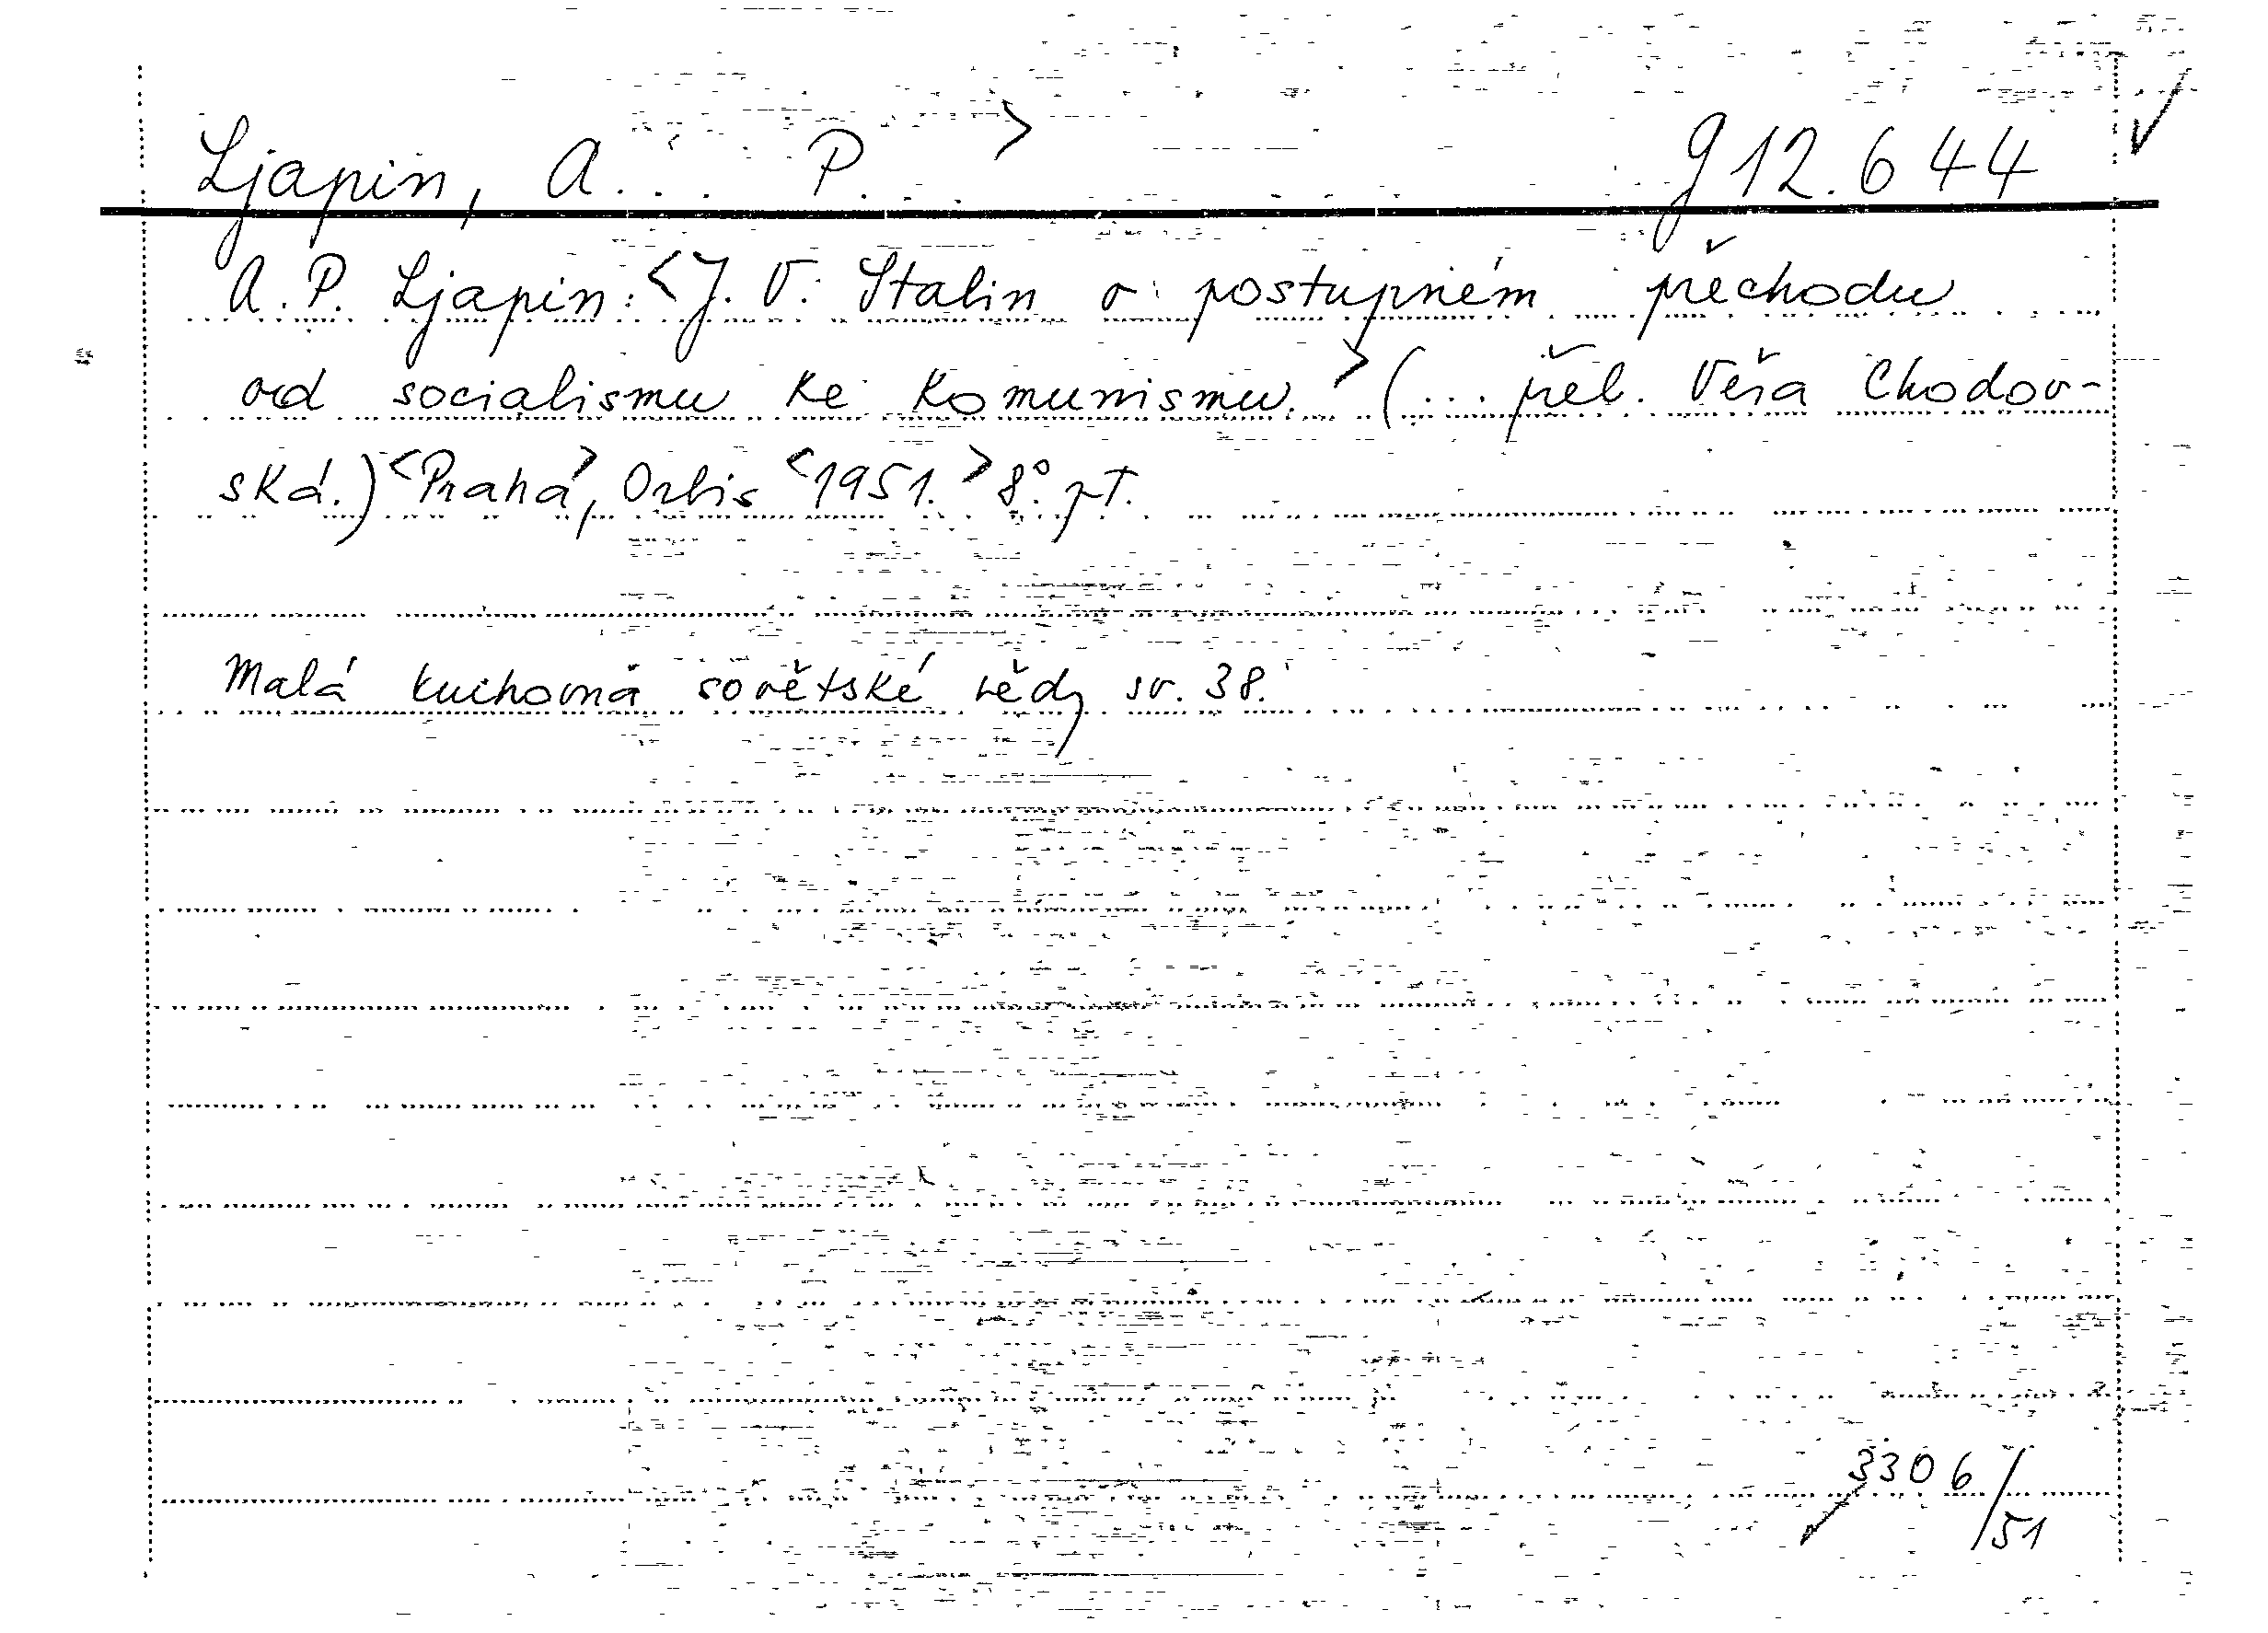 Ljapin, A. . . P. . . > g 12.644 ✓
A. P. Ljapin: <J. V. Stalin o postupném přechodu
od socialismu ke komunismu.> (... přel. Věra Chodov-
ská.) <Praha>, Orbis <1951.> 8°. pT.
Malá knihovna sovětské vědy sv. 38.
3306/51